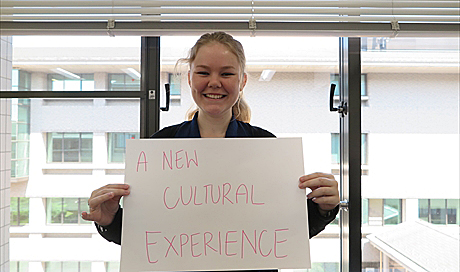 A NEW
CULTURAL
EXPERIENCE